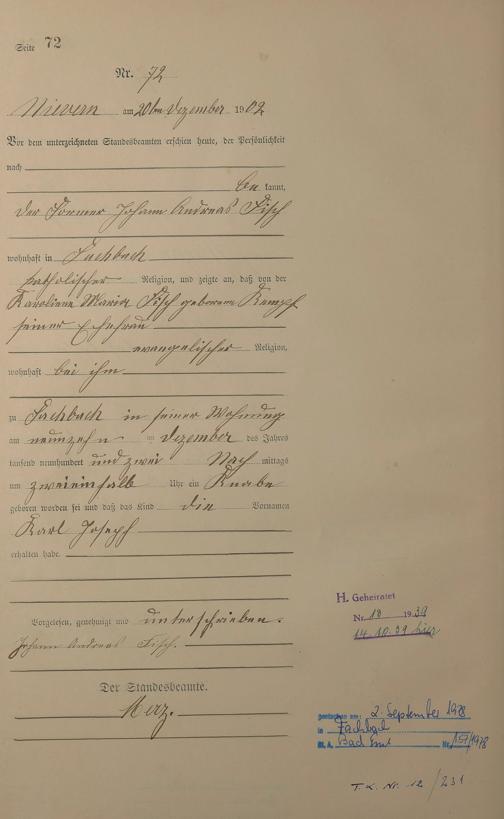 Seite 72
Nr. 72
Nievern am 20ten Dezember 1902
Vor dem unterzeichneten Standesbeamten erschien heute, der Persönlichkeit
nach
be kannt,
der Former Johann Andreas Fisch
wohnhaft in Fachbach
katholischer Religion, und zeigte an, daß von der
Karoline Maria Fisch geborene Kempf
seiner Ehefrau
evangelischer Religion,
wohnhaft bei ihm
zu Fachbach in seiner Wohnung
am neunzehn Dezember des Jahres
tausend neunhundert und zwei Nach mittags
um zweieinhalb Uhr ein Knabe
geboren worden sei und daß das Kind die Vornamen
Karl Joseph
erhalten habe.
Vorgelesen, genehmigt und unterschrieben.
Johann Andreas Fisch.
Der Standesbeamte.
Merz.
H. Geheiratet
Nr. 18 1939
14.10.39 hier
gestorben am: 2. September 1978
in Fachbach
St. A. Bad Ems Nr. 157/1978
T. K. Nr. 12/231